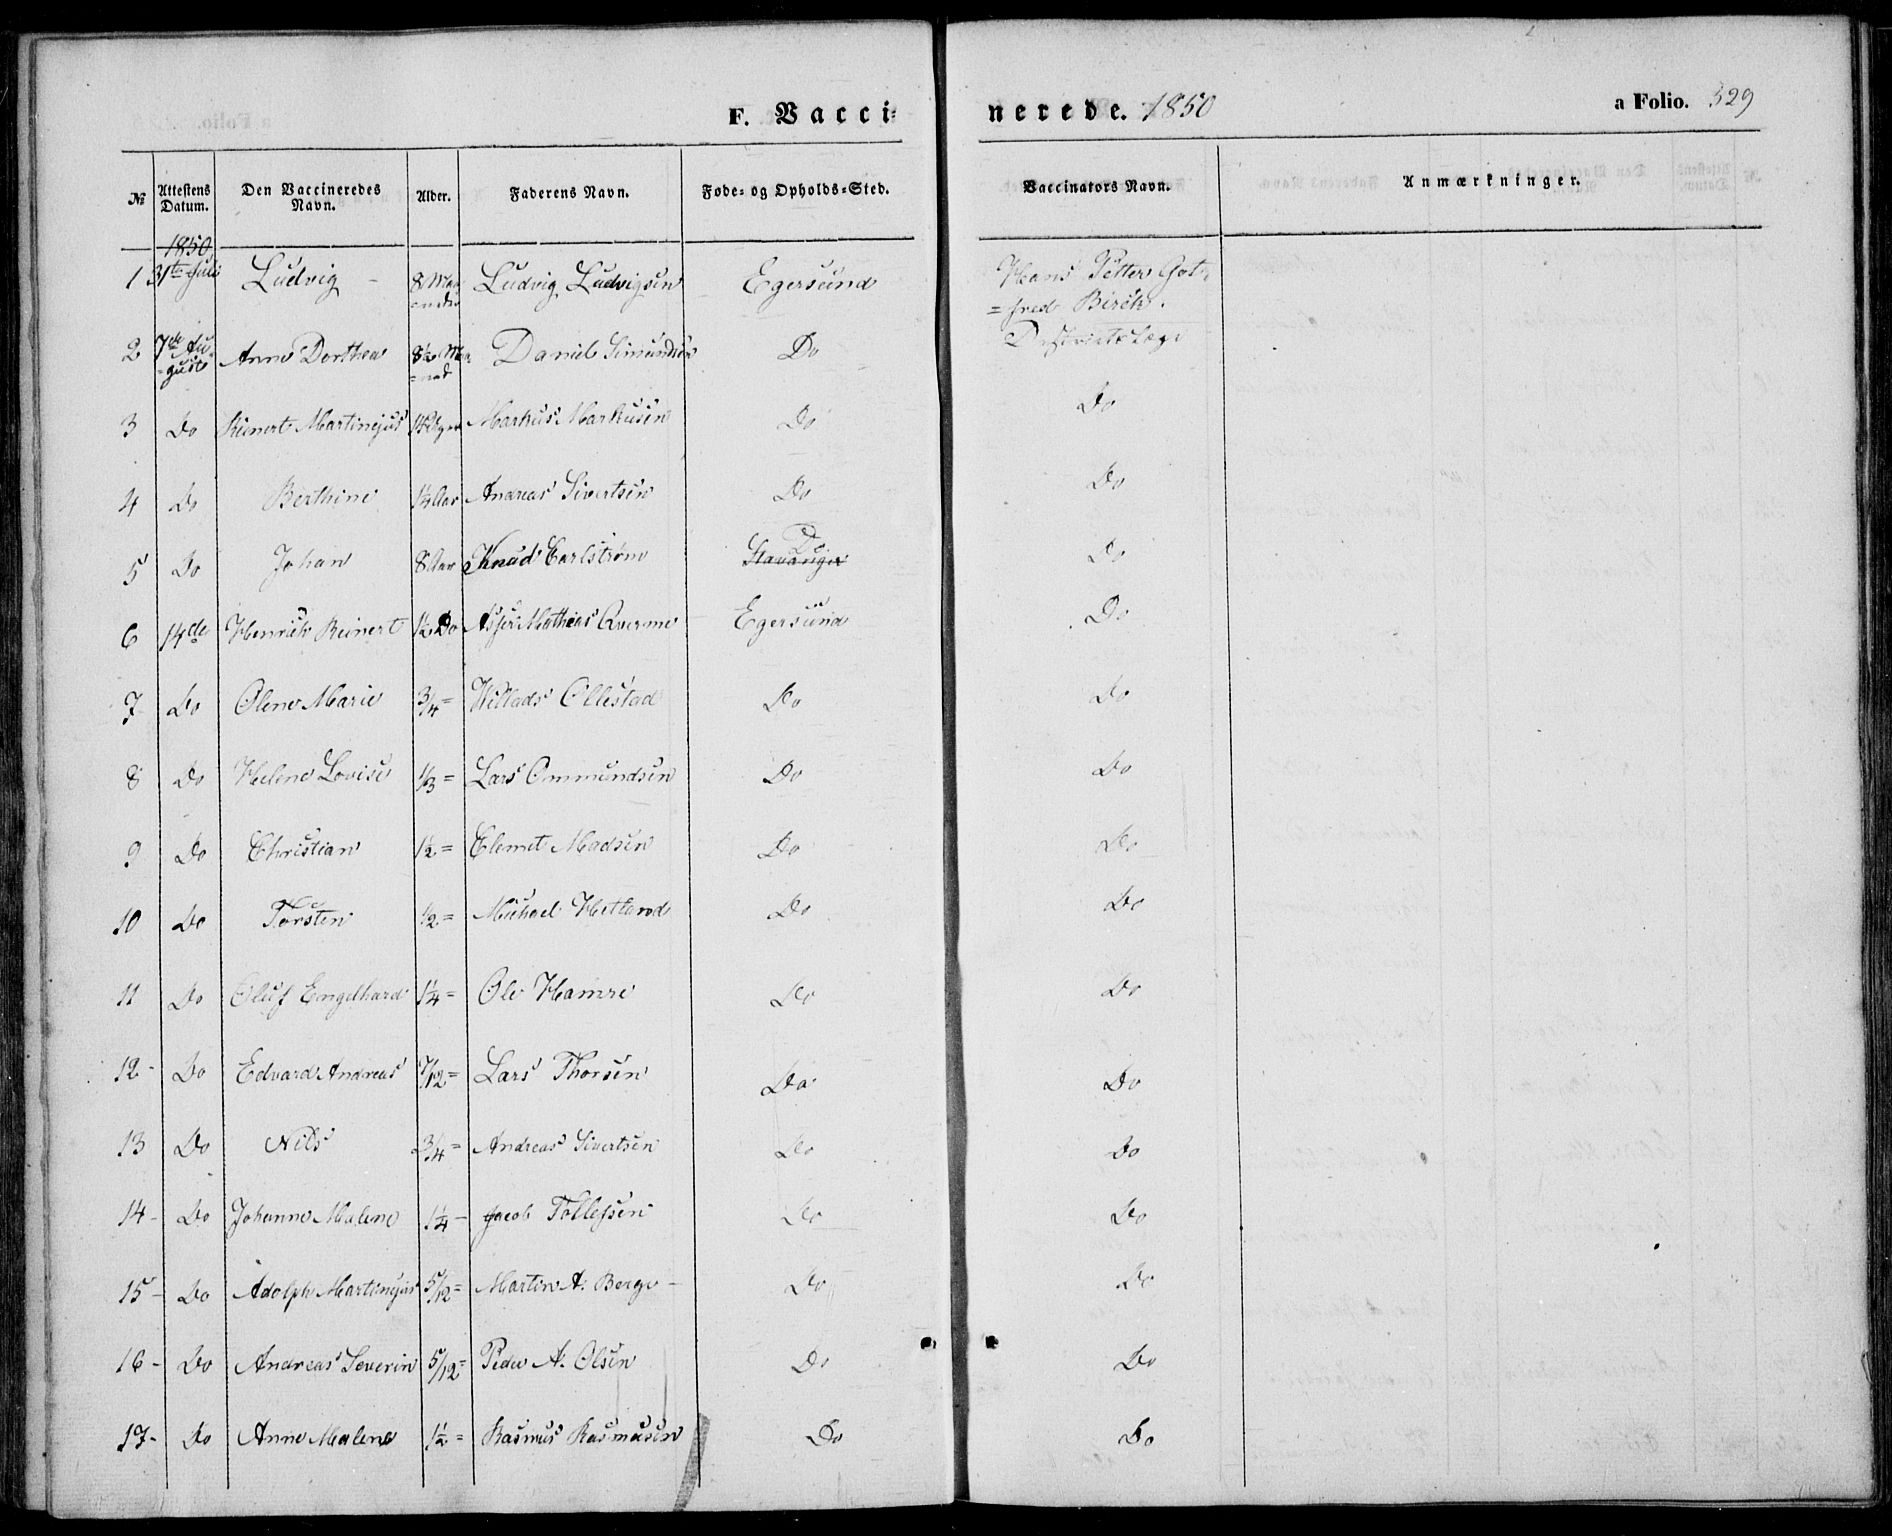 F. Vacci-
nerede. 1850
a Folio. 329
№ Attestens Datum. Den Vaccineredes Navn. Alder. Faderens Navn. Føde- og Opholds-Sted. Vaccinators Navn. Anmærkninger.
1850
1 31te Juli Ludvig 8 Maaneder Ludvig Ludvigsen Egersund Hans Petter Gotfred Birch. Districts Læge
2 7de August Anne Dorthea 8½ Maaned Daniel Simundsen Do Do
3 Do Reinert Martinejus Markus Markusen Do Do
4 Do Berthine 1½ Aar Andreas Sivertsen Do Do
5 Do Johan 8 Aar Knud Carlstrøm Do Stavanger Do
6 14de Henrik Reinert 1½ Do Asser Mathias Qverme Egersund Do
7 Do Olene Marie ¾ = Willads Ollestad Do Do
8 Do Helene Lovise ⅓ = Lars Ommundsen Do Do
9 Do Christian 1½ = Clemet Madsen Do Do
10 Do Torsten ½ = Michael Hetland Do Do
11 Do Oluf Engelhard 1¼ = Ole Hamre Do Do
12 - Do Edvard Andreas 7/12 = Lars Thorsen Do Do
13 Do Nils ¾ = Andreas Sivertsen Do Do
14 - Do Johanne Malene 1¼ - Jacob Tollefsen Do Do
15 - Do Adolph Martinejus 5/12 = Martin A. Berge - Do Do
16 - Do Andreas Severin 5/12 = Peder A. Olsen Do Do
17 - Do Anne Malene 1½ = Rasmus Rasmusen Do Do